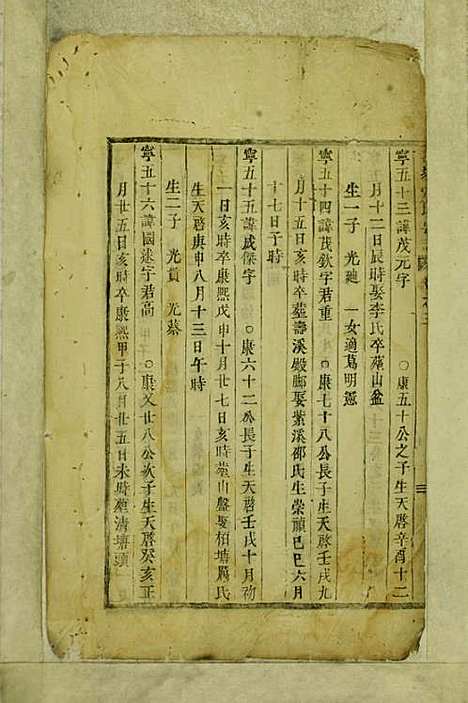 寧五十三諱茂元字　○康五十公之子生天啓辛酉十二
月十二日辰時娶李氏卒葬山盆
生一子　光廸　一女適葛明憲
寧五十四諱茂欽字君重　○康七十八公長子生天啓壬戌九
月十五日亥時卒葬壽溪殿脚娶紫溪邵氏生崇禎己巳六月
十七日子時
寧五十五諱威傑字　○康六十二公長子生天啓壬戌十月初
一日亥時卒康熙戊申十月廿七日亥時葬山盤娶柏塘厲氏
生天啓庚申八月十三日午時
生二子　光貫　光慕
寧五十六諱國逑字君高　○康又廿八公次子生天啓癸亥正
月廿五日亥時卒康熙甲子八月廿五日未時葬清塘頭